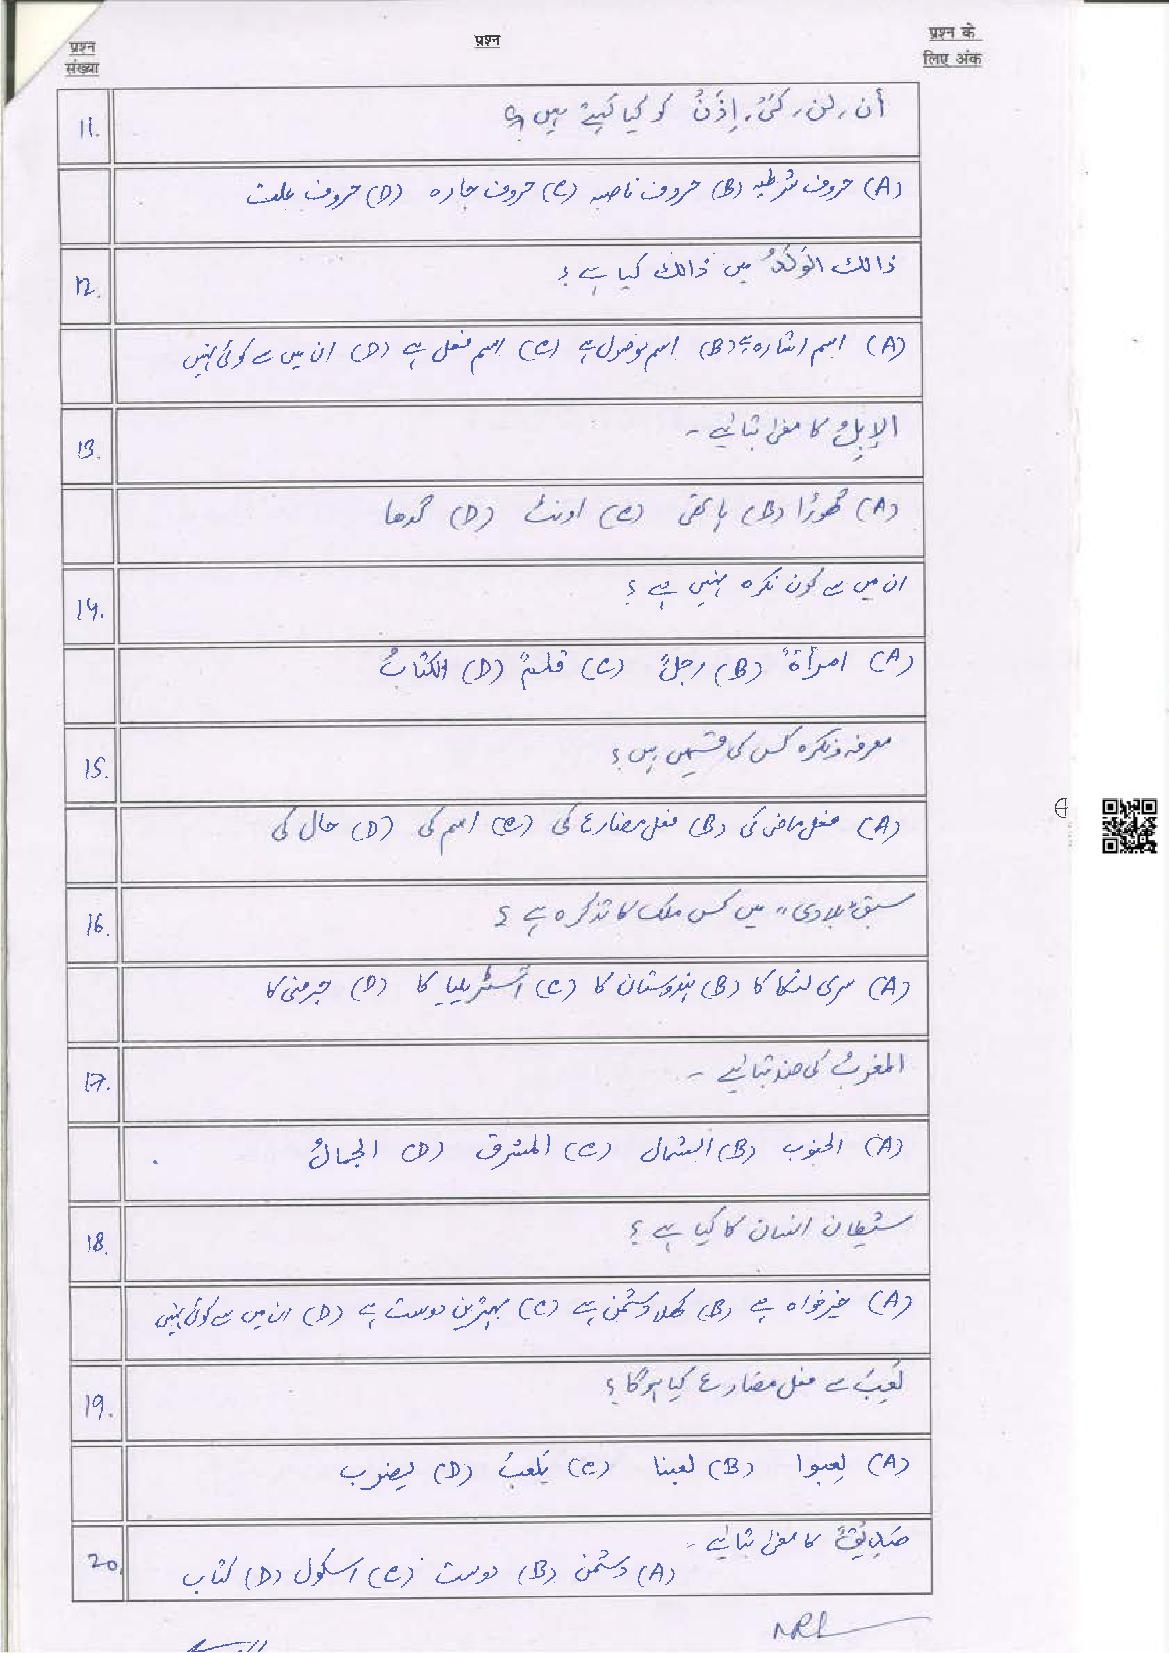 प्रश्न संख्या
प्रश्न
प्रश्न के लिए अंक
11.
أن، لن، كَيْ، إِذَنْ کو کیا کہتے ہیں؟
(A) حروف شرطیہ (B) حروف ناصبہ (C) حروف جارہ (D) حروف علت
12.
ذالک الوَلَدُ میں ذالک کیا ہے؟
(A) اسم اشارہ ہے (B) اسم موصول ہے (C) اسم فعل ہے (D) ان میں سے کوئی نہیں
13.
الإِبِلُ کا معنیٰ بتائیے -
(A) گھوڑا (B) ہاتھی (C) اونٹ (D) گدھا
14.
ان میں سے کون نکرہ نہیں ہے؟
(A) امرأةٌ (B) رجلٌ (C) قلمٌ (D) الکتابُ
15.
معرفہ و نکرہ کس کی قسمیں ہیں؟
(A) فعل ماضی کی (B) فعل مضارع کی (C) اسم کی (D) حال کی
16.
سبق "بلادی" میں کس ملک کا تذکرہ ہے؟
(A) سری لنکا کا (B) ہندوستان کا (C) آسٹریلیا کا (D) جرمنی کا
17.
المغربُ کی ضد بتائیے -
(A) الجنوب (B) الشمال (C) المشرق (D) الجبالُ
18.
شیطان انسان کا کیا ہے؟
(A) خیر خواہ ہے (B) کھلا دشمن ہے (C) بہترین دوست ہے (D) ان میں سے کوئی نہیں
19.
لَعِبَ سے فعل مضارع کیا ہوگا؟
(A) لعبوا (B) لعبنا (C) يَلعبُ (D) يضرب
20.
صَدِيْقٌ کا معنیٰ بتائیے -
(A) دشمن (B) دوست (C) اسکول (D) کتاب